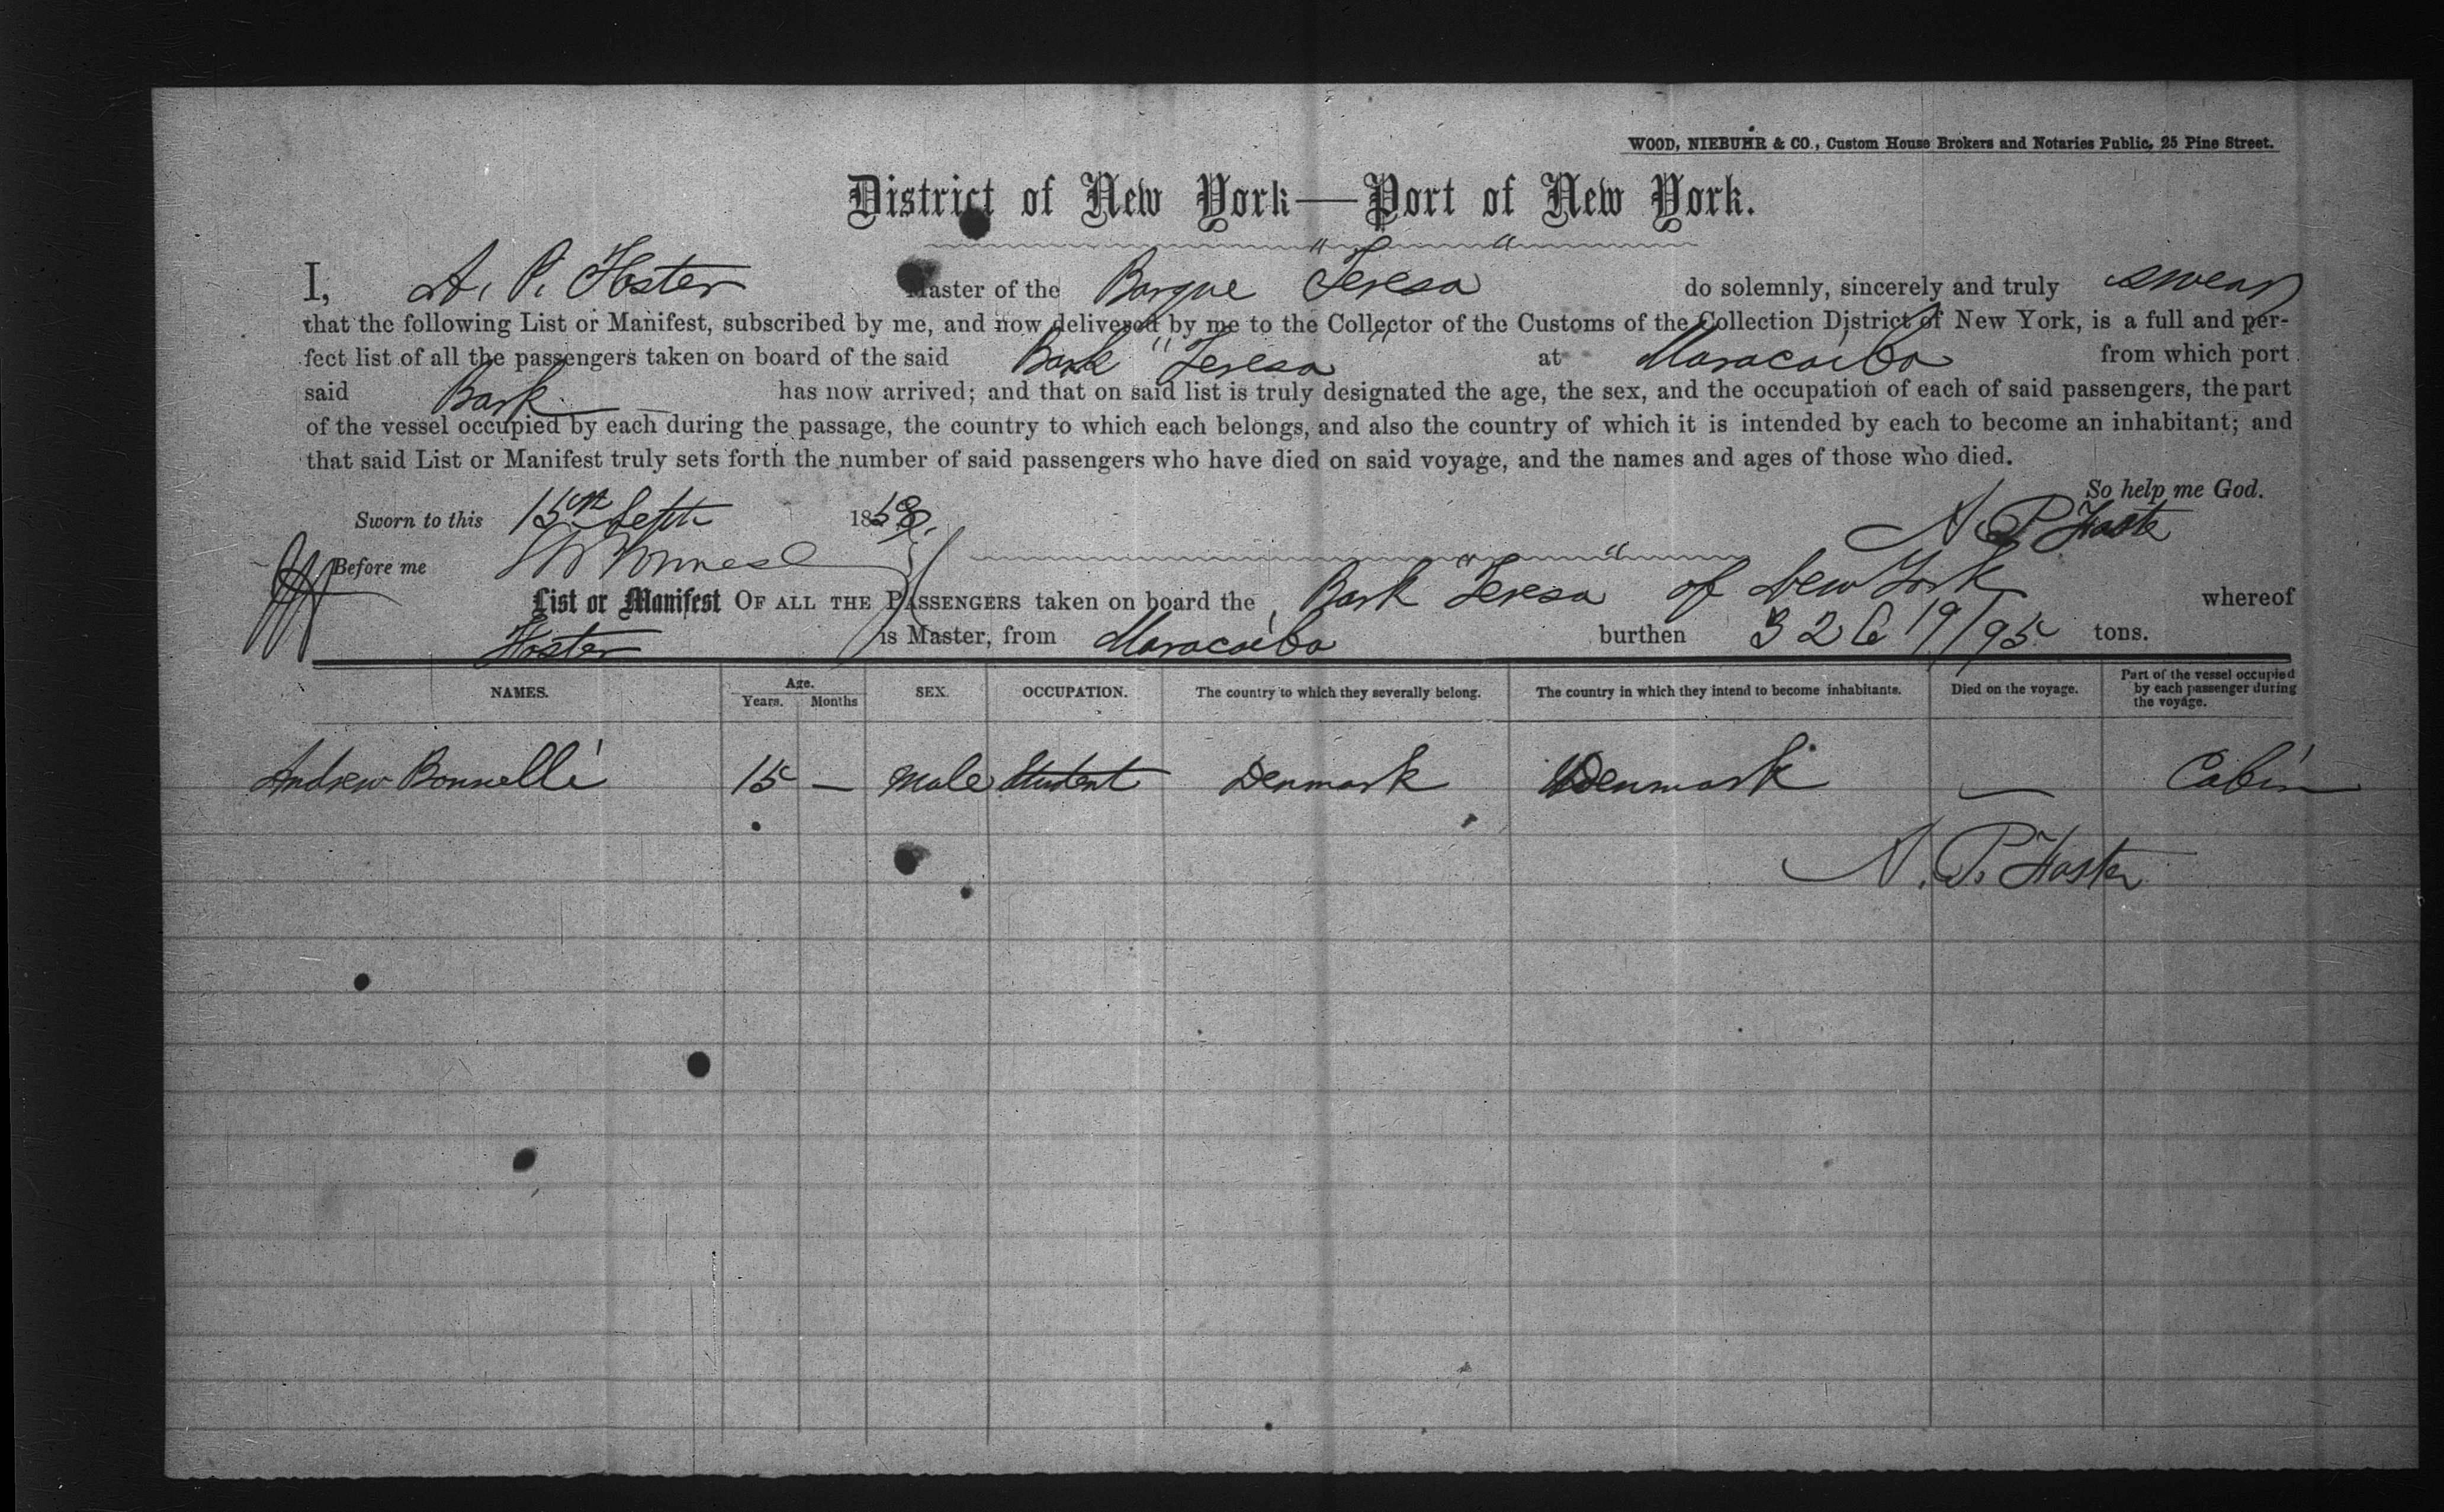 WOOD, NIEBUHR & CO., Custom House Brokers and Notaries Public, 25 Pine Street.
District of New York—Port of New York.
I, A. P. Foster Master of the Barque "Teresa" do solemnly, sincerely and truly swear
that the following List or Manifest, subscribed by me, and now delivered by me to the Collector of the Customs of the Collection District of New York, is a full and per-
fect list of all the passengers taken on board of the said Bark "Teresa" at Maracaibo from which port
said Bark has now arrived; and that on said list is truly designated the age, the sex, and the occupation of each of said passengers, the part
of the vessel occupied by each during the passage, the country to which each belongs, and also the country of which it is intended by each to become an inhabitant; and
that said List or Manifest truly sets forth the number of said passengers who have died on said voyage, and the names and ages of those who died.
So help me God.
Sworn to this 15th Septr 1858. A. P. Foster
Before me
List or Manifest OF ALL THE PASSENGERS taken on board the Bark "Teresa" of New York whereof
Foster is Master, from Maracaibo burthen 326 19/95 tons.
NAMES. Age. Years. Months SEX. OCCUPATION. The country to which they severally belong. The country in which they intend to become inhabitants. Died on the voyage. Part of the vessel occupied by each passenger during the voyage.
Andrew Bonnelli 15 — Male Student Denmark Denmark — Cabin
A. P. Foster